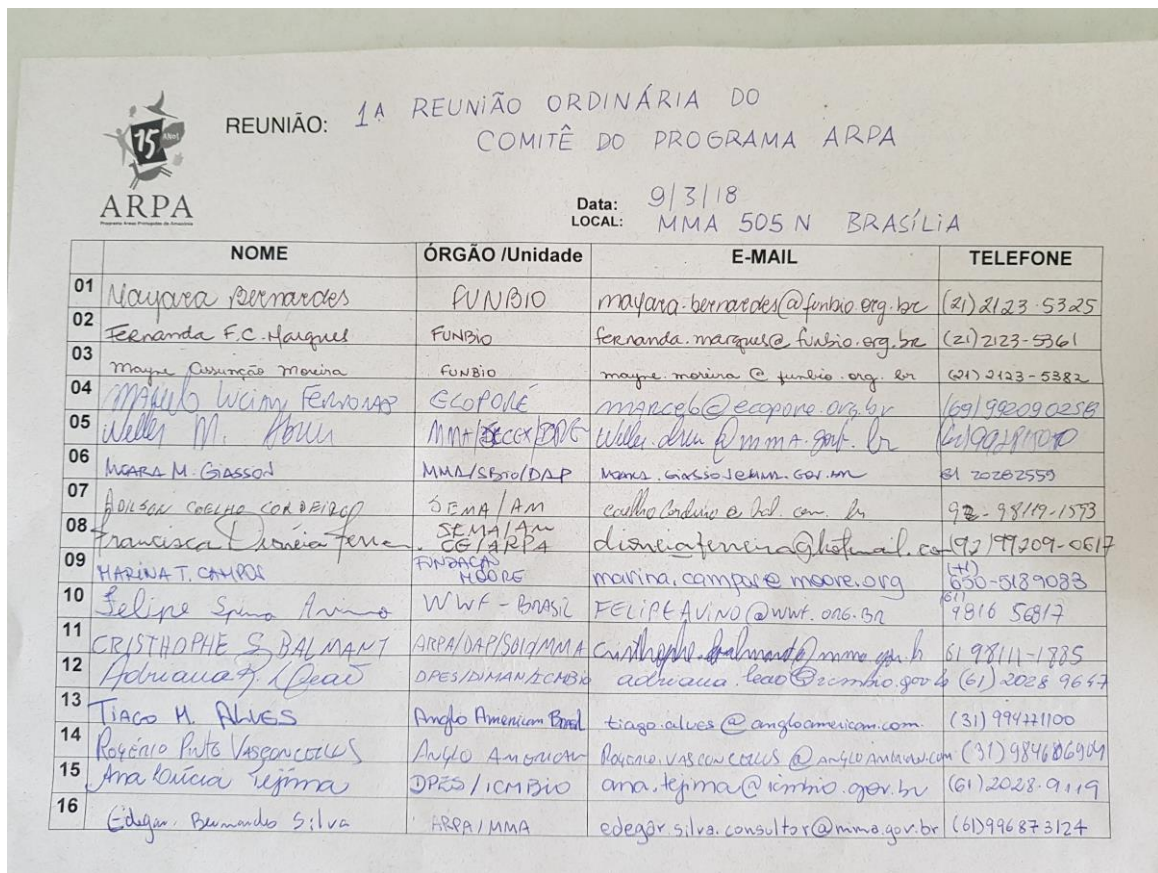 15 Anos
ARPA
Programa Áreas Protegidas da Amazônia
REUNIÃO: 1A REUNIÃO ORDINÁRIA DO
COMITÊ DO PROGRAMA ARPA
Data: 9/3/18
LOCAL: MMA 505 N BRASÍLIA
NOME ÓRGÃO /Unidade E-MAIL TELEFONE
01 Mayara Bernardes FUNBIO mayara.bernardes@funbio.org.br (21) 2123-5325
02 Fernanda F.C. Marques FUNBIO fernanda.marques@funbio.org.br (21) 2123-5361
03 Mayne Assunção Moreira FUNBIO mayne.moreira@funbio.org.br (21) 2123-5382
04 Marcelo Lucian Ferronato ECOPORÉ marcelo@ecopore.org.br (69) 992090258
05 M.
06 M. GIASSON MMA/SBIO/DAP 61 20282559
07 ADILSON COELHO CORDEIRO SEMA/AM 92-98119-1593
08 Francisca Dionéia Ferrei SEMA/AM CG/ARPA dioneiaferreira@hotmail.co (92) 99209-0617
09 MARINA T. CAMPOS FUNDAÇÃO MOORE marina.campos@moore.org (+1) 650-5189083
10 Felipe Spina Avino WWF - BRASIL FELIPEAVINO@WWF.ORG.BR (61) 9816 56817
11 CRISTHOPHE S. BALMANT 61 98111-1885
12 Adriana Leão DPES/DIMAN/ICMBio adriana.leao@icmbio.gov.b (61) 2028 9647
13 TIAGO M. ALVES Anglo American Brasil tiago.alves@angloamerican.com. (31) 994771100
14 Rogério Pinto Vasconcellos ANGLO AMERICAN Rogerio.vasconcellos@angloamerican.com (31)
15 Ana Lúcia Tejima DPES/ICMBio ana.tejima@icmbio.gov.br (61) 2028-9119
16 Edegar Bernardes Silva ARPA/MMA edegar.silva.consultor@mma.gov.br (61) 996873124